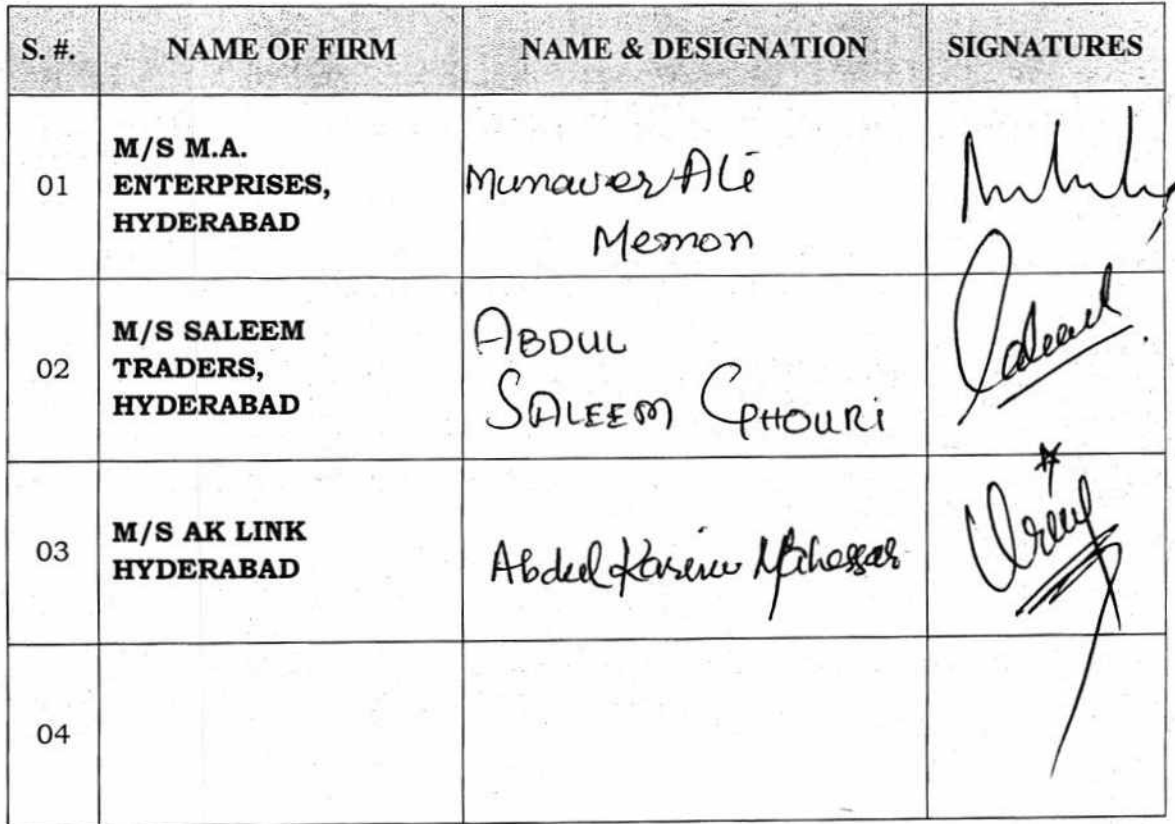 S. #. NAME OF FIRM NAME & DESIGNATION SIGNATURES
01
M/S M.A.
ENTERPRISES,
HYDERABAD
Munawer Ali
Memon
02
M/S SALEEM
TRADERS,
HYDERABAD
ABDUL
SALEEM GHOURI
03
M/S AK LINK
HYDERABAD
Abdul Karim Mahessar
04